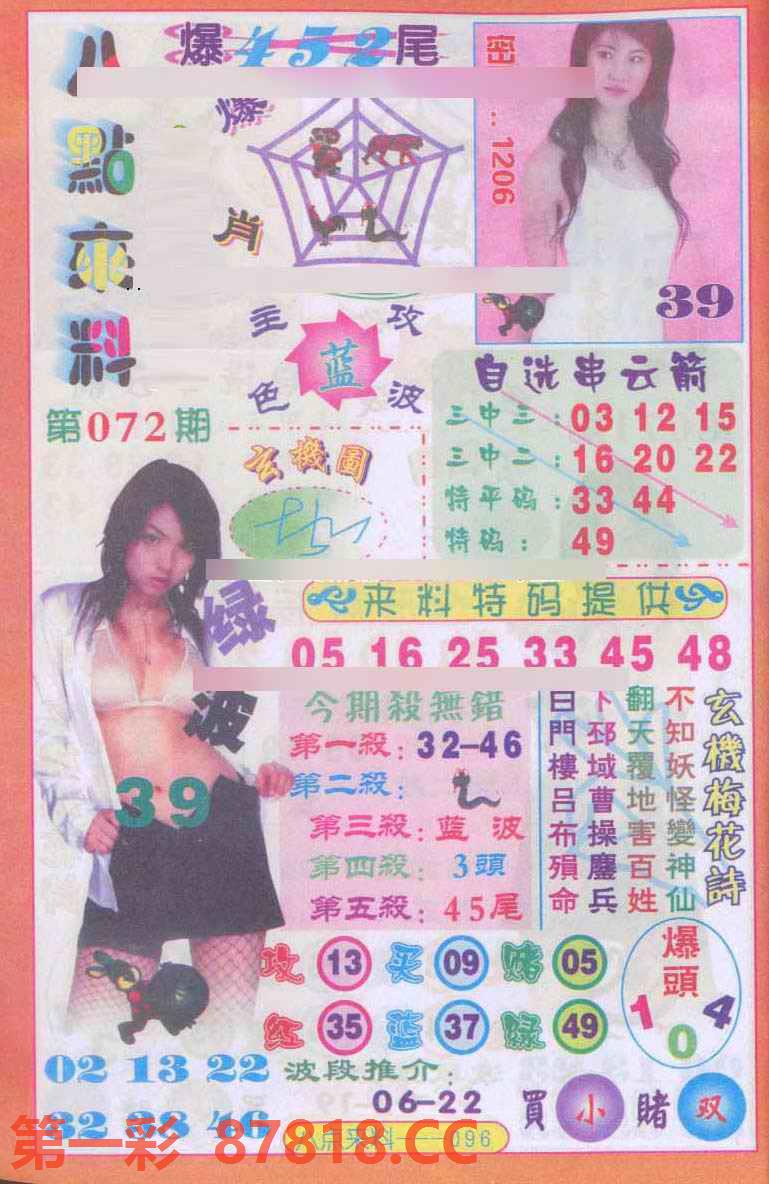 八點來料
爆452尾
爆肖
1206
39
主攻
蓝
色波
自选串云箭
三中三：03 12 15
三中二：16 20 22
特平码：33 44
特码：49
第072期
玄機圖
来料特码提供
05 16 25 33 45 48
绿波
39
今期殺無錯
第一殺：32-46
第二殺：
第三殺：蓝波
第四殺：3頭
第五殺：45尾
玄機梅花詩
不知妖怪變神仙
翻天覆地害百姓
下邳域曹操鏖兵
白門樓呂布殞命
攻 13 买 09 赌 05
红 35 蓝 37 绿 49
爆頭
1 0 4
02 13 22
波段推介：
06-22
買小賭双
第一彩 87818.CC